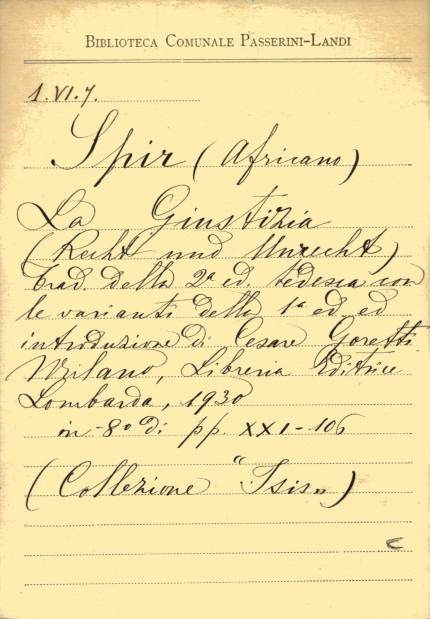 BIBLIOTECA COMUNALE PASSERINI-LANDI
1.VI.7.
Spir (Africano)
La Giustizia
(Recht und Unrecht)
Trad. della 2ª ed. tedesca con
le varianti della 1ª ed. ed
introduzione di Cesare Goretti
Milano, Libreria Editrice
Lombarda, 1930
in-8º di pp. XXI-106
(Collezione "Isis")